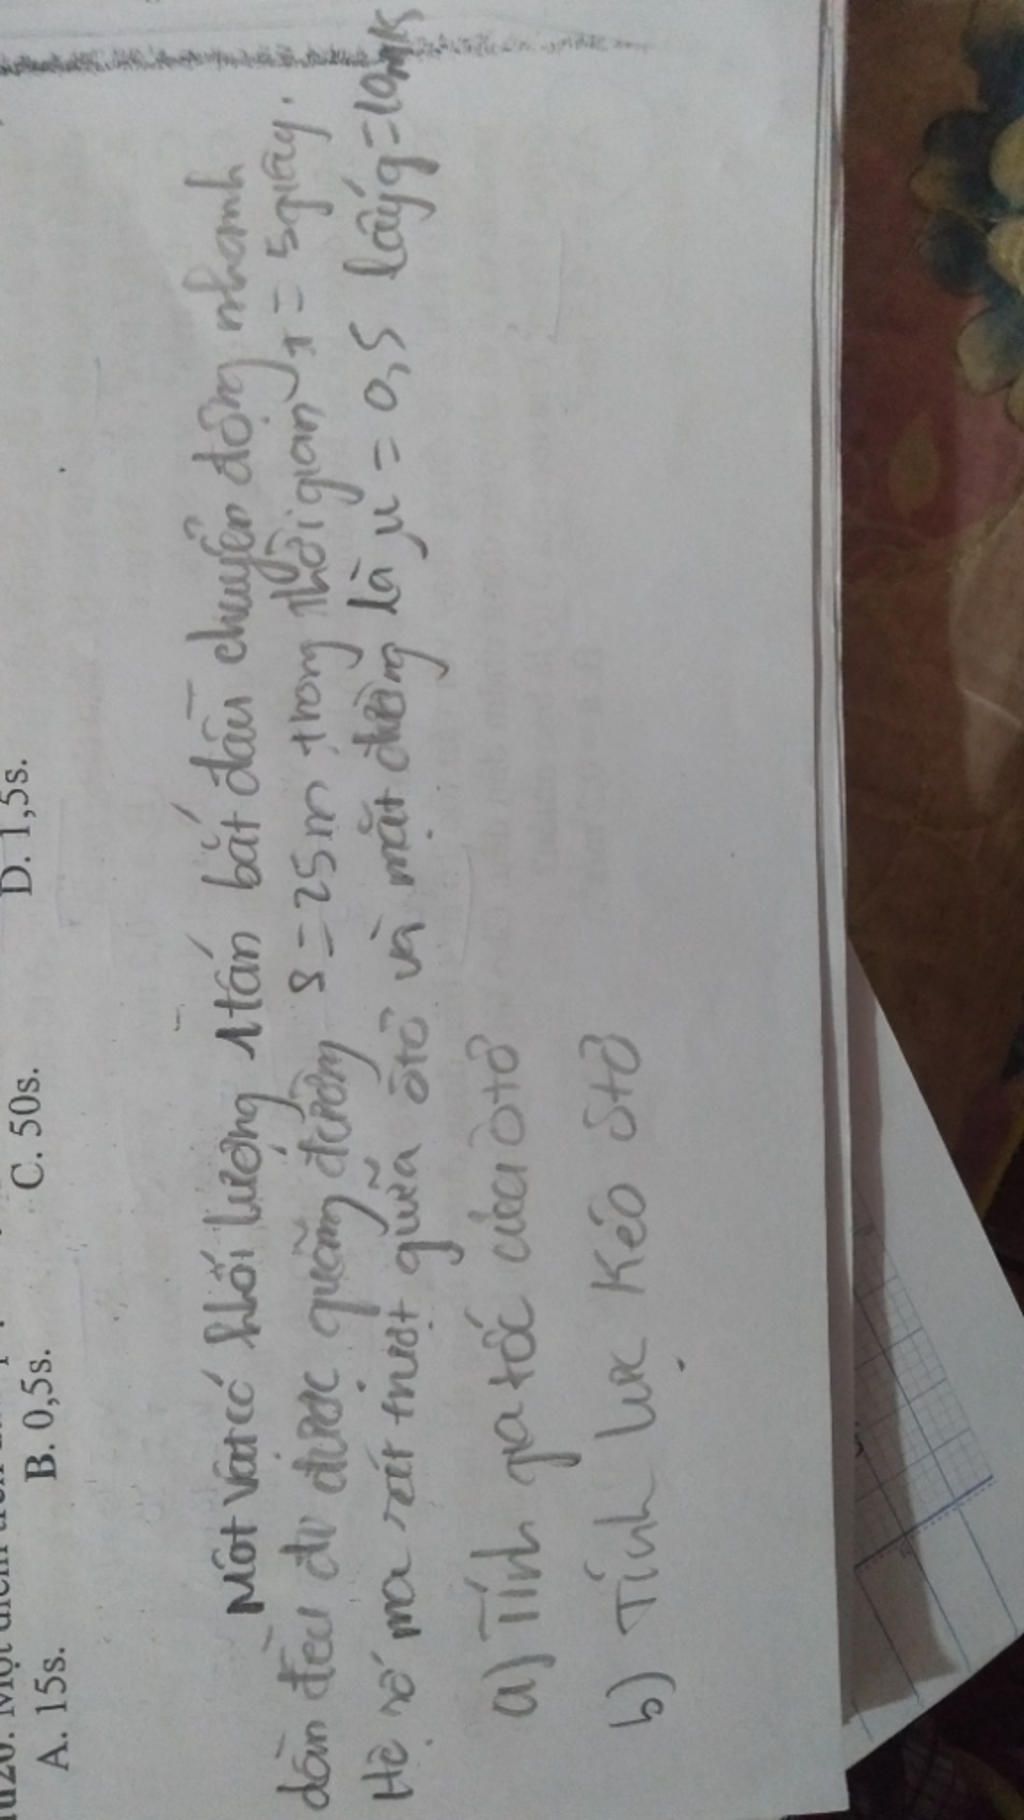 D. 1,5s.
C. 50s.
B. 0,5s.
A. 15s.
Một vật có khối lượng 1 tấn bắt đầu chuyển động nhanh
dần đều đi được quãng đường s = 25 m trong thời gian t = 5 giây.
Hệ số ma rát trượt giữa ôtô và mặt đường là μ = 0,5 lấy g = 10m/s
a) Tính gia tốc của ôtô
b) Tính lực kéo ôtô